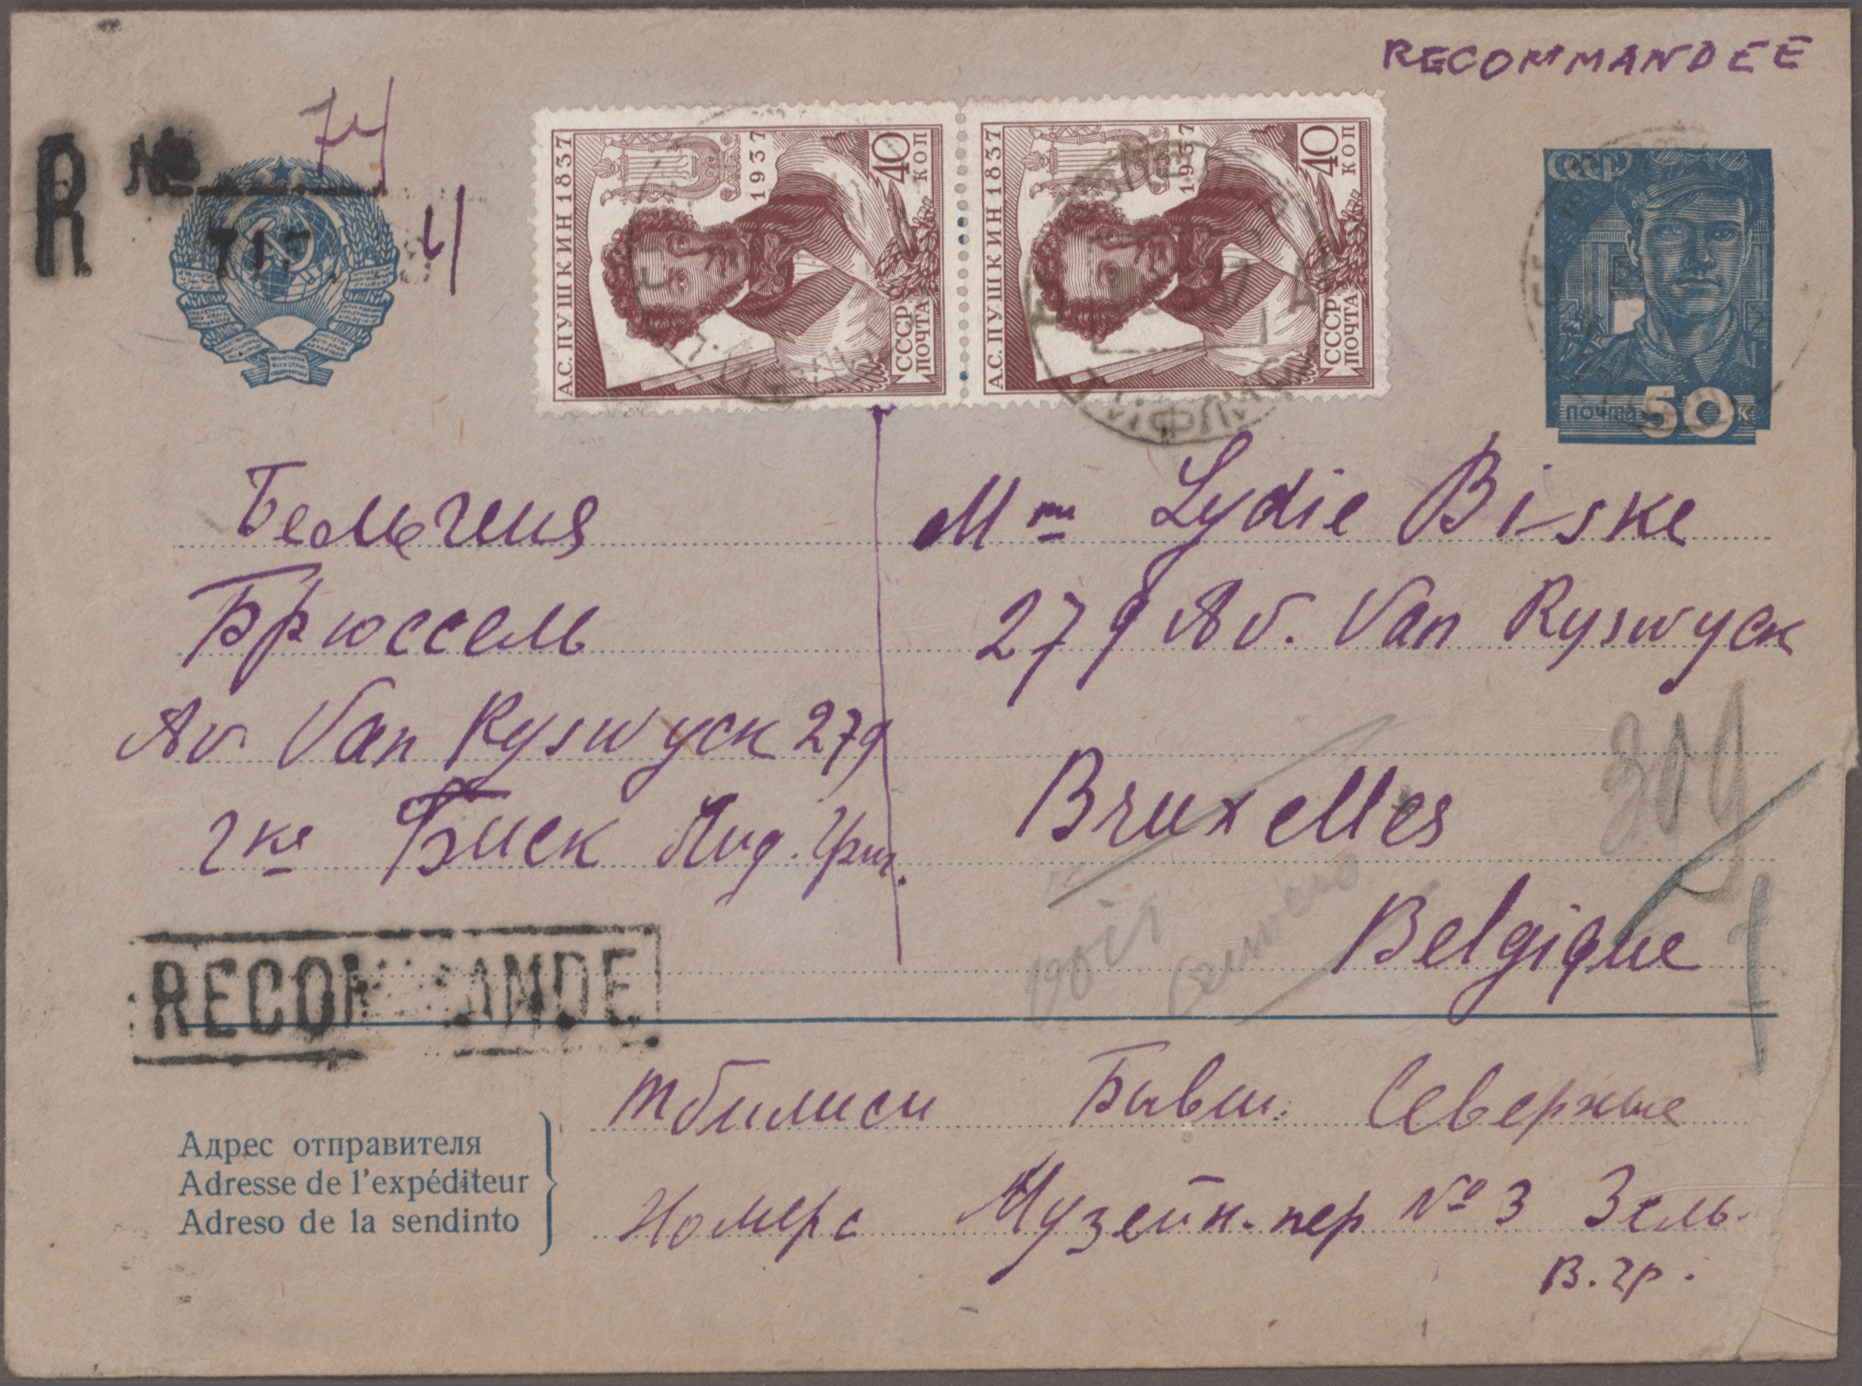 RECOMMANDEE
R № 74
4
А.С. ПУШКИН 1837
1937
40 КОП
СССР ПОЧТА
А.С. ПУШКИН 1837
1937
40 КОП
СССР ПОЧТА
СССР
ПОЧТА 50 К
Бельгия
Брюссель
Av. Van Ryswyck 279
гке Биск Лид. Гри.
Mme Lydie Biske
279 Av. Van Ryswyck
Bruxelles
Belgique
RECOMMANDE
Адрес отправителя
Adresse de l'expéditeur
Adreso de la sendinto
Тбилиси Бывш. Северные
Номера Музейн. пер № 3 Зель.
В. Гр.